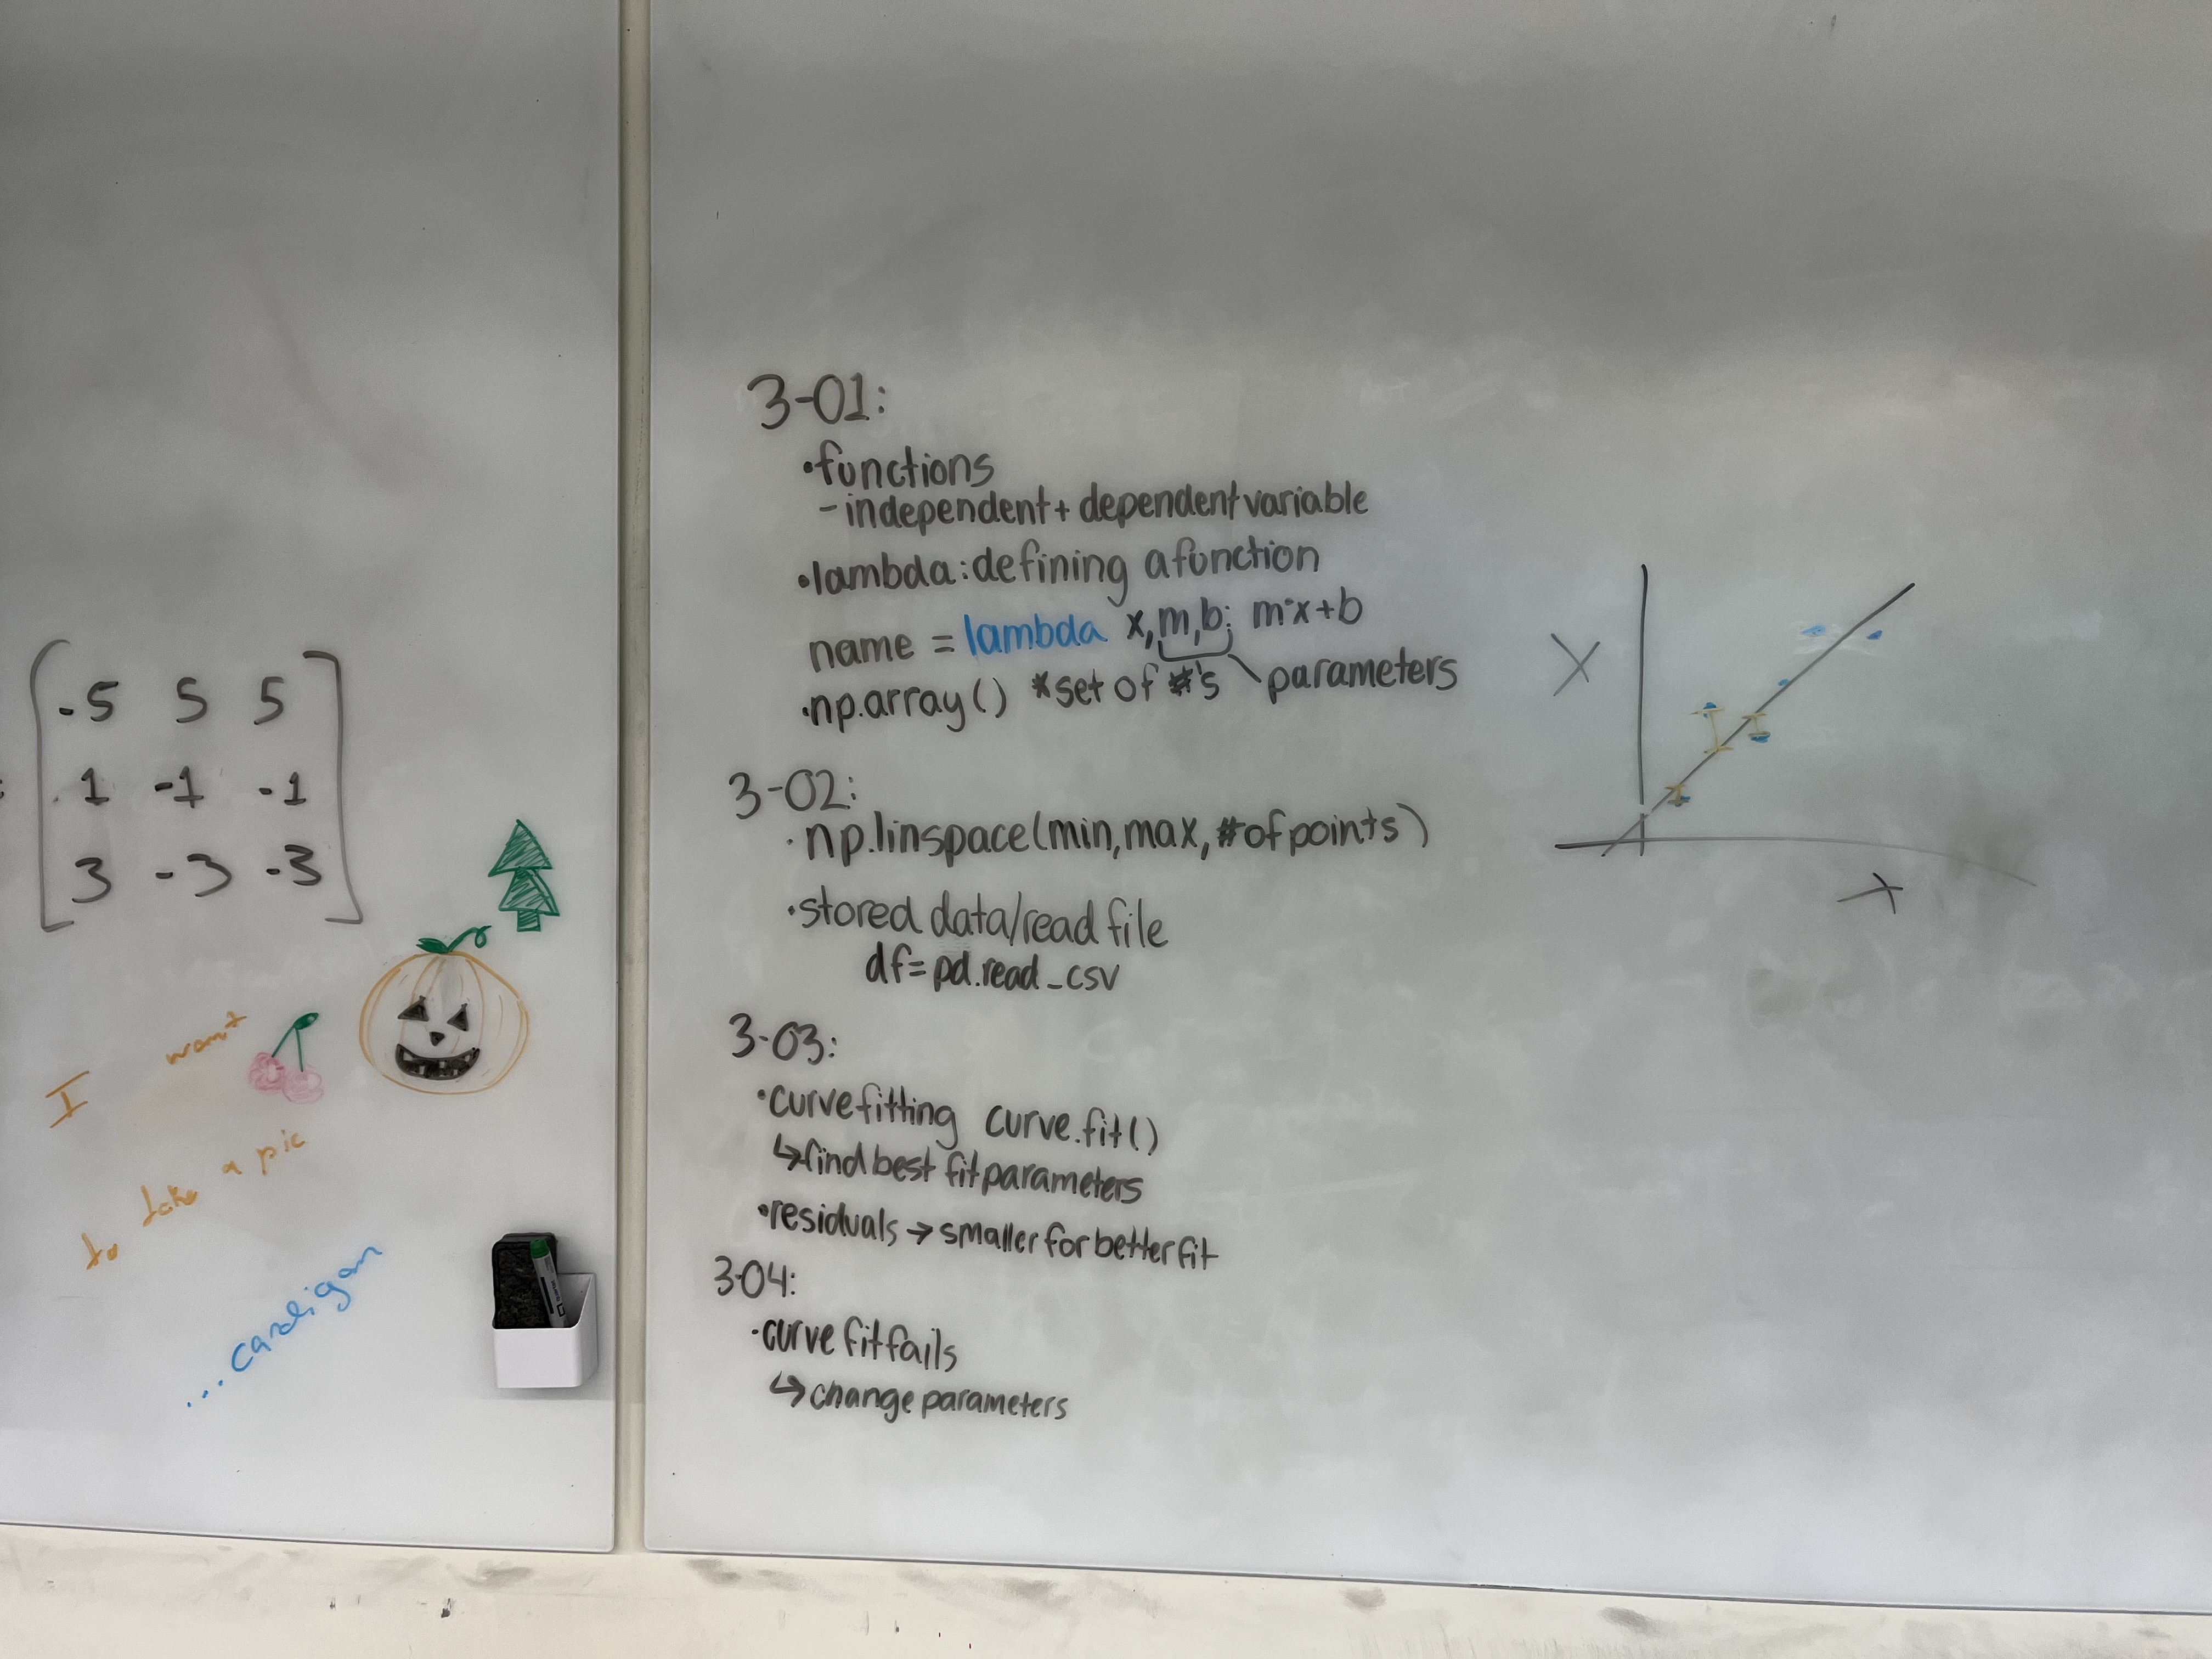 -5 5 5
1 -1 -1
3 -3 -3
I want
to take a pic
...cardigan
3-01:
•functions
- independent + dependent variable
•lambda: defining a function
name = lambda x,m,b: m·x+b
parameters
•np.array() *set of #'s
3-02:
•np.linspace(min,max,#of points)
•stored data/read file
df=pd.read_csv
3-03:
•curve fitting curve.fit()
↳find best fit parameters
•residuals → smaller for better fit
3-04:
•curve fit fails
↳change parameters
X
x